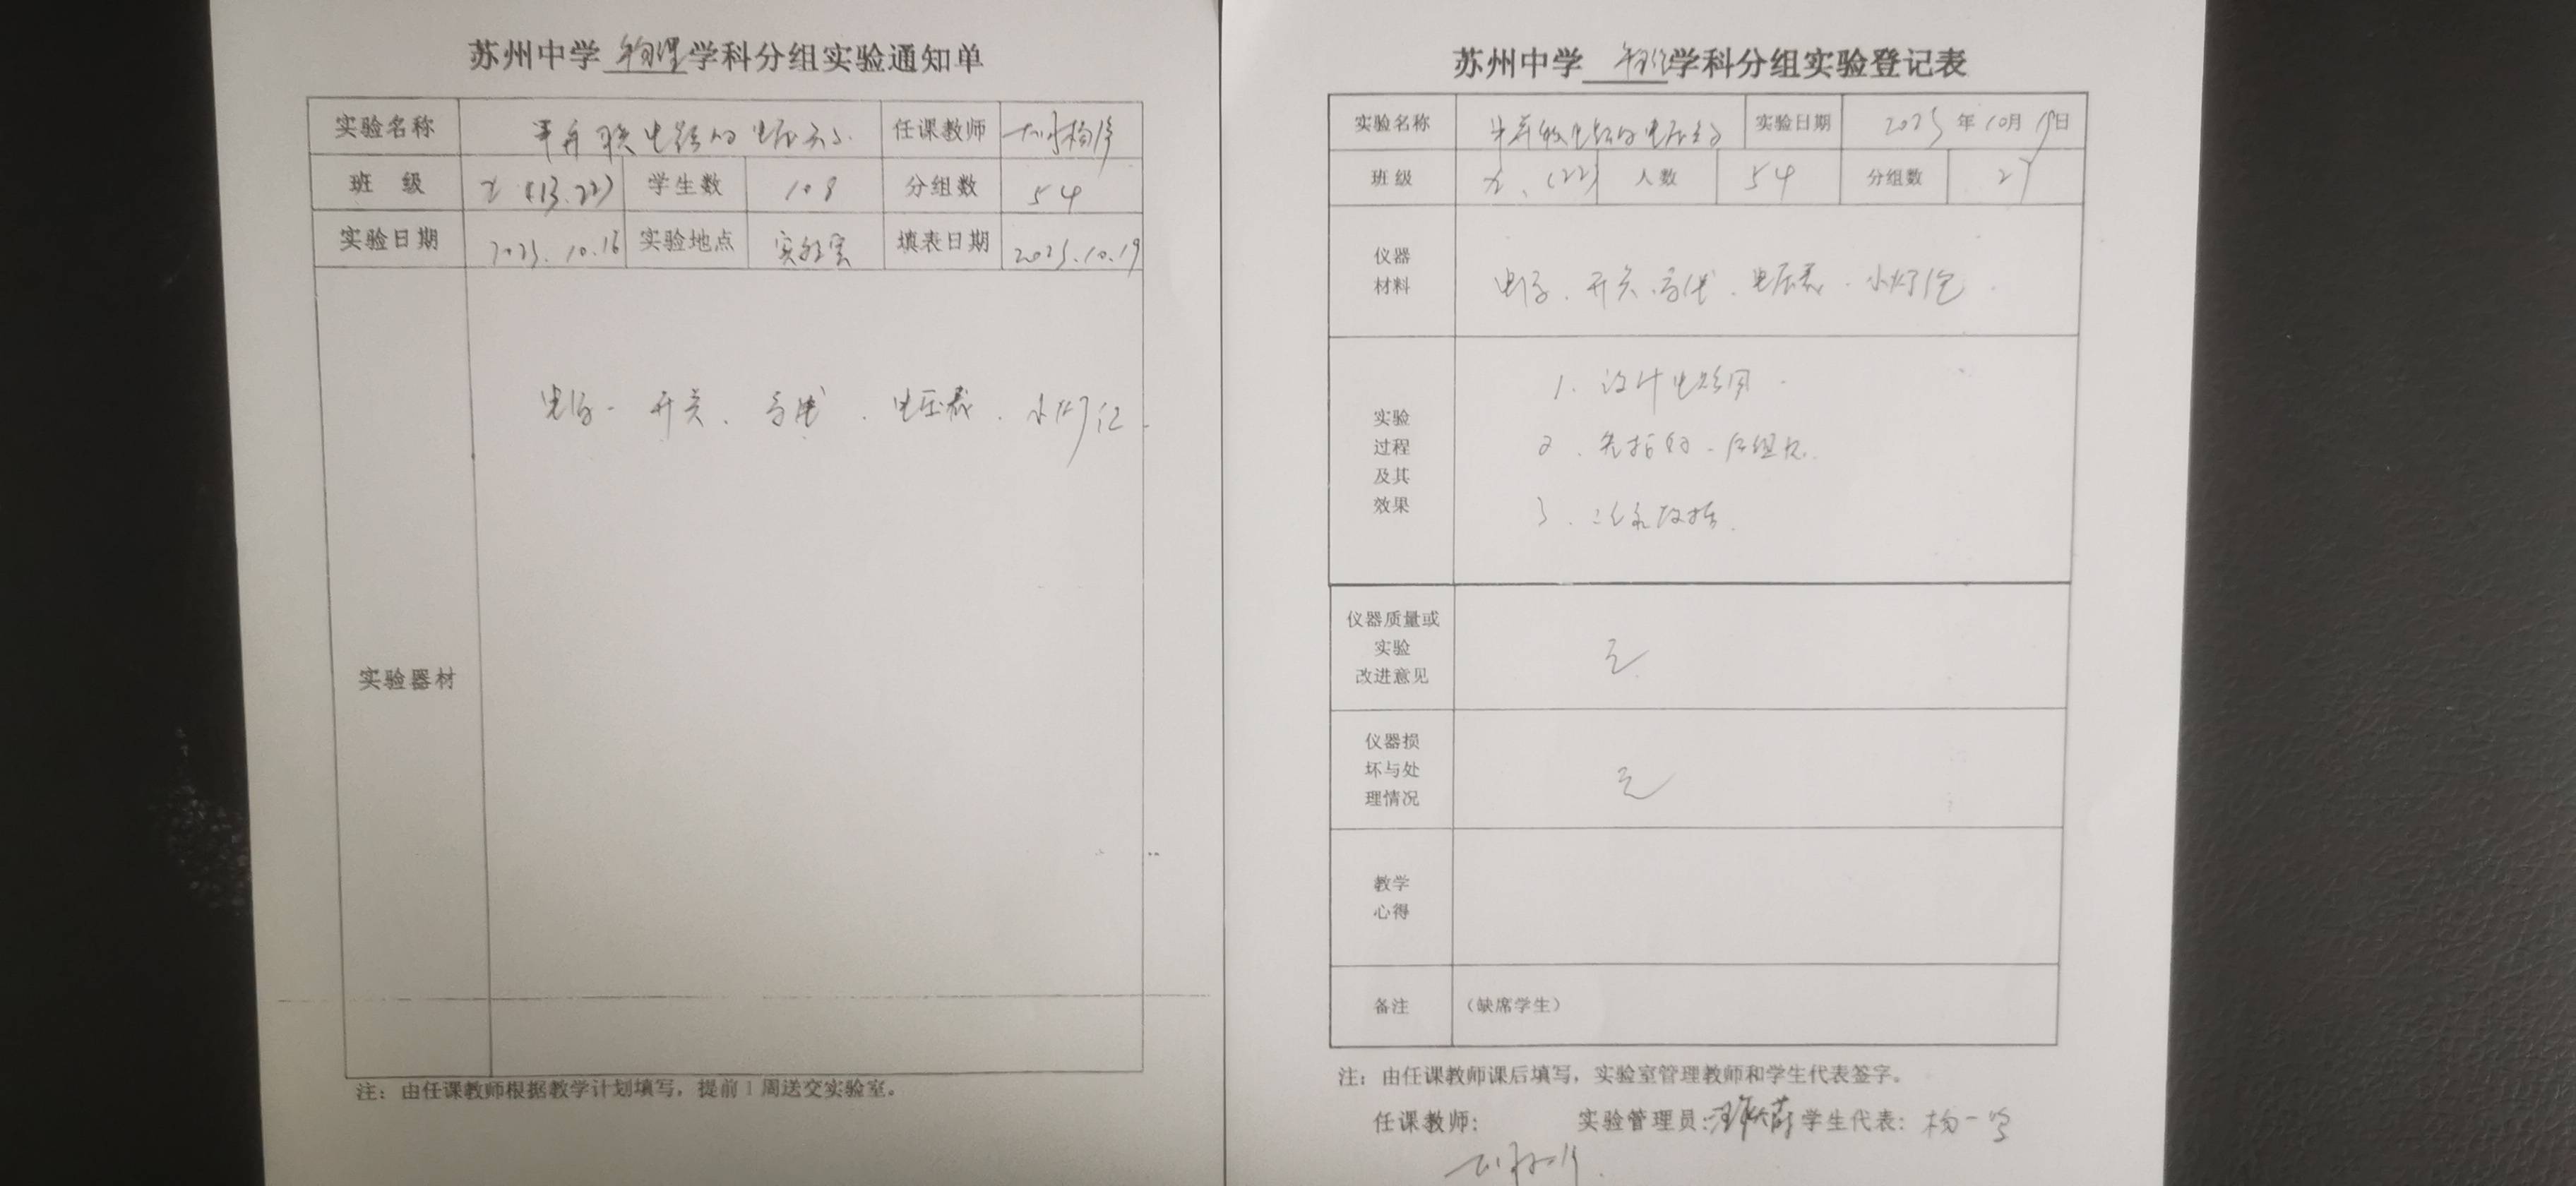 苏州中学 物理 学科分组实验通知单
实验名称 串并联电路的电压 任课教师
班 级 (13.22) 学生数 108 分组数 54
实验日期 2023.10.16 实验地点 实验室 填表日期 2023.10.19
电源 开关、导线、电压表、小灯泡
实验器材
注：由任课教师根据教学计划填写，提前1周送交实验室。
苏州中学 物理 学科分组实验登记表
实验名称 串并联电路的电压 实验日期 2023年10月19日
班级 (22) 人数 54 分组数 27
仪器
材料
电源、开关、导线、电压表、小灯泡
实验
过程
及其
效果
1. 设计电路图
2.
3.
仪器质量或
实验
改进意见
无
仪器损
坏与处
理情况
无
教学
心得
备注 （缺席学生）
注：由任课教师课后填写，实验室管理教师和学生代表签字。
任课教师： 实验管理员： 学生代表：杨一